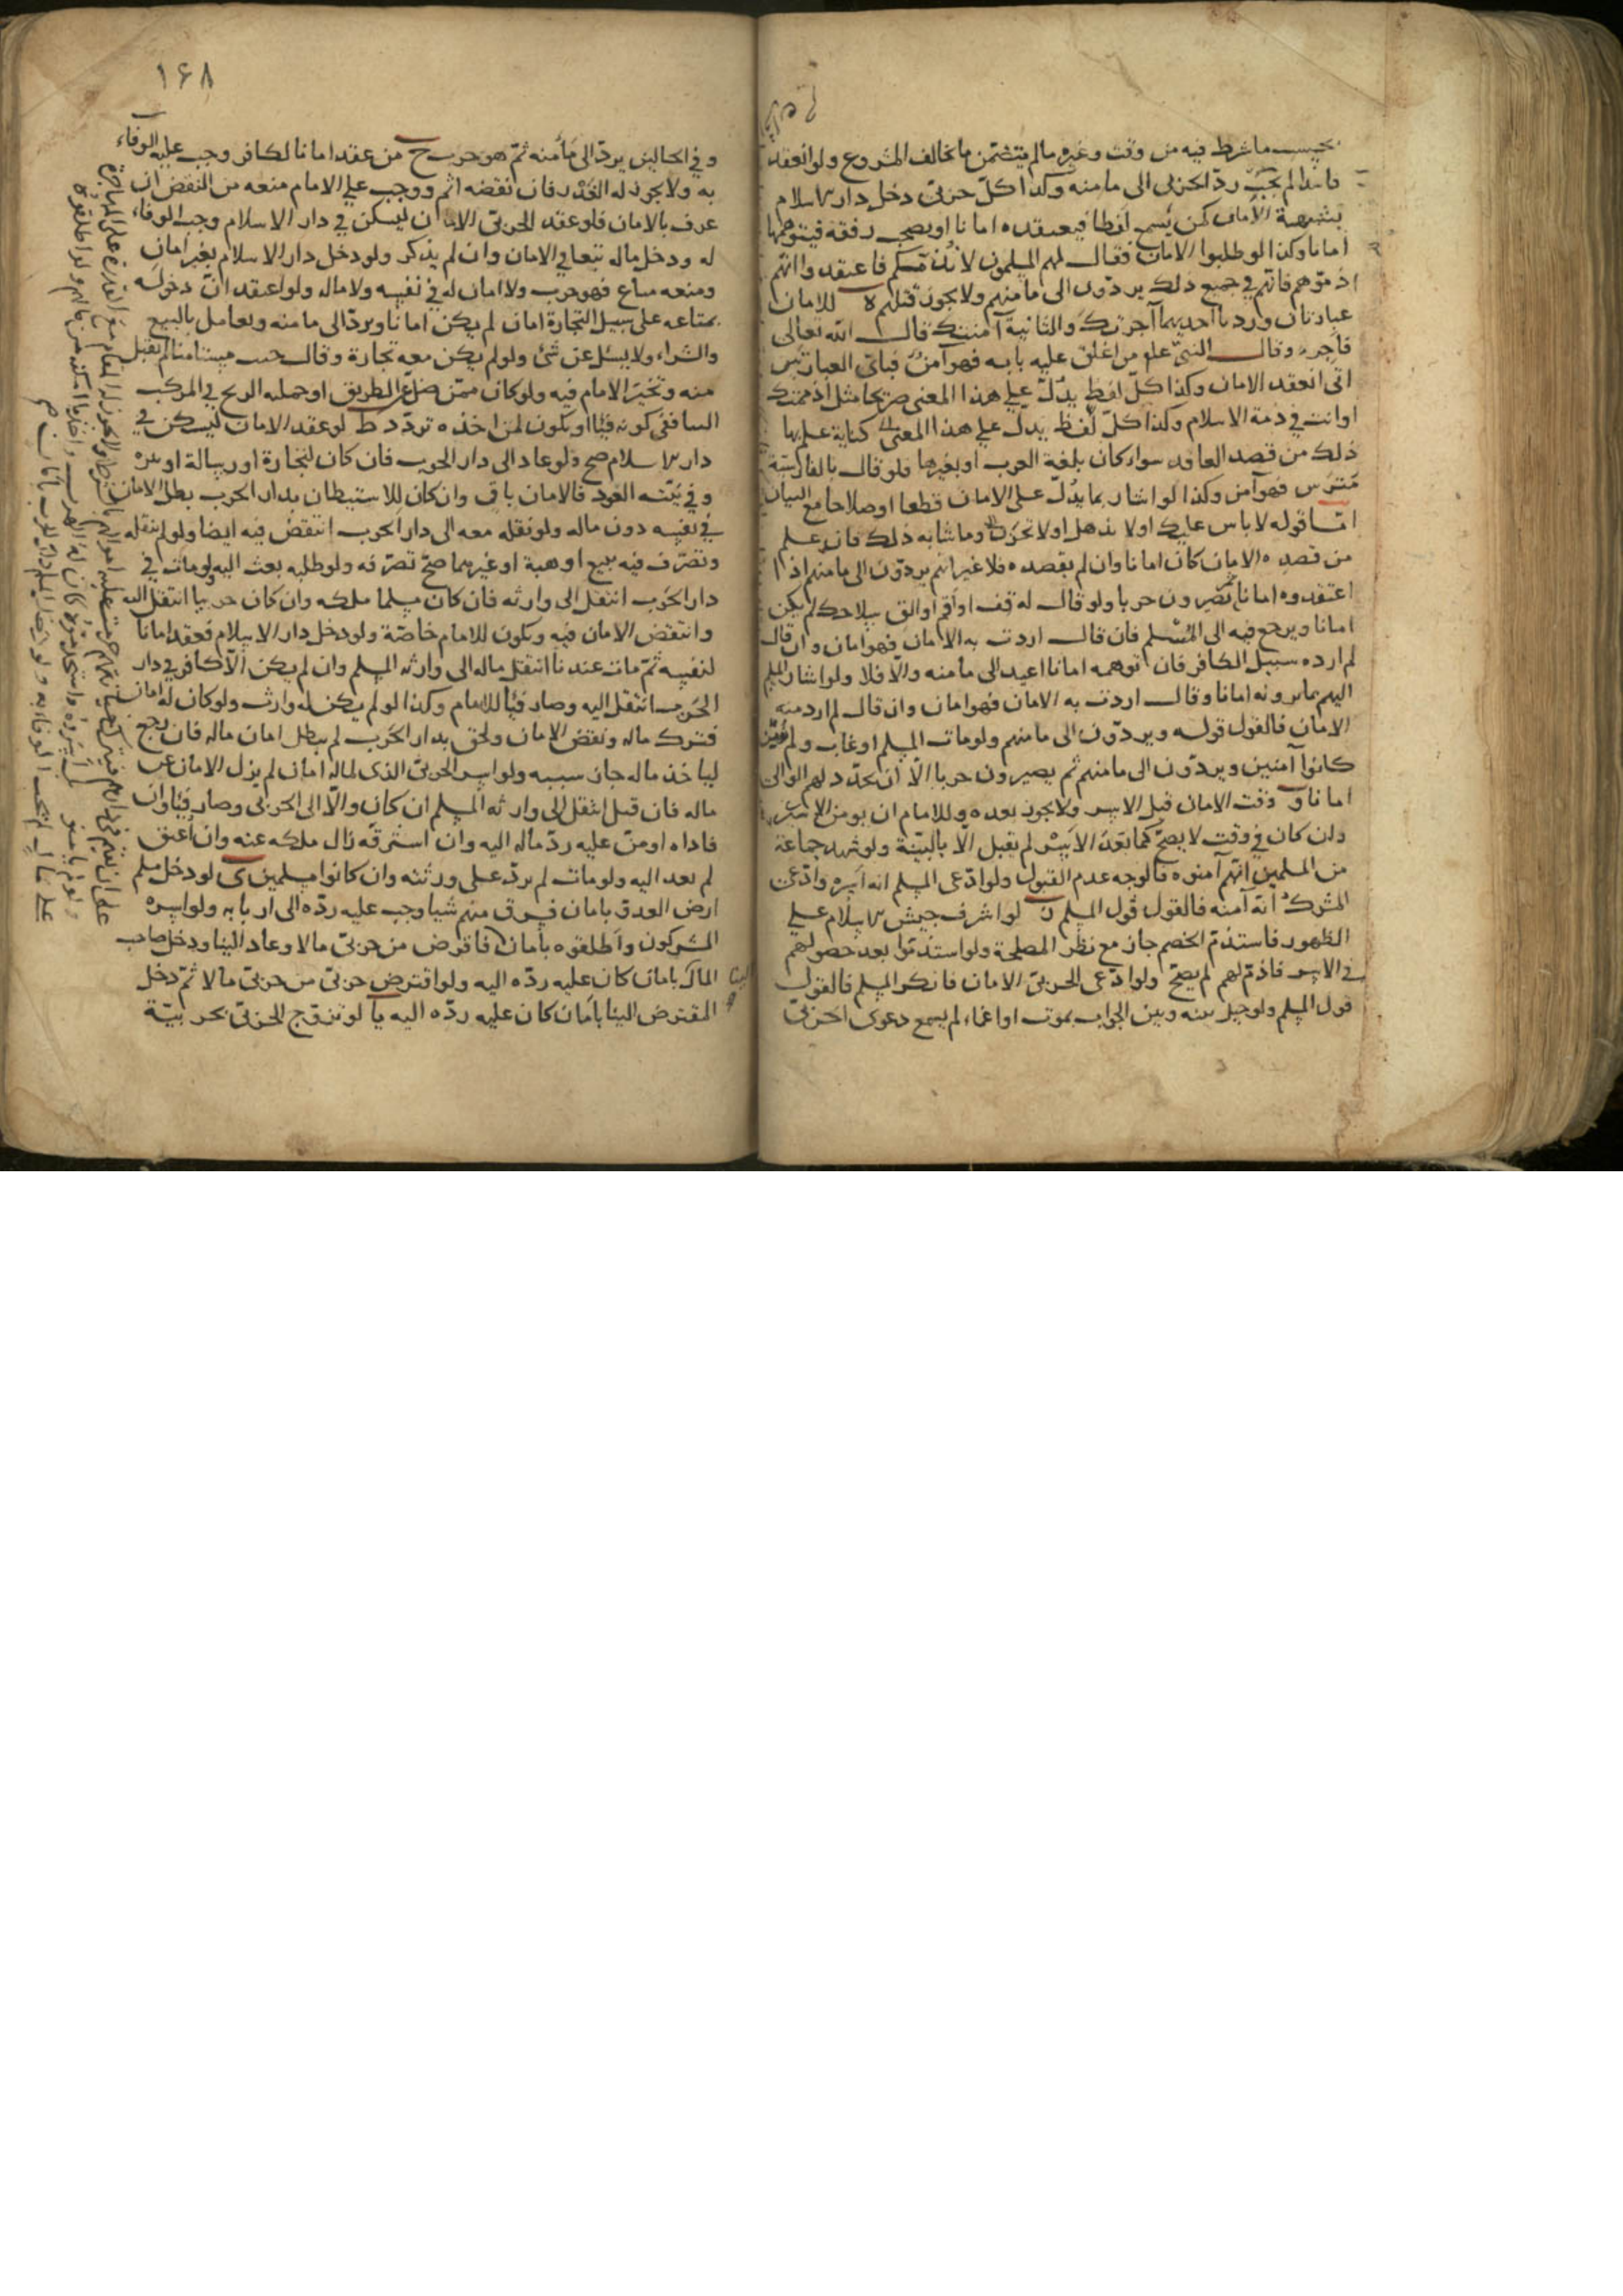 بحسب ما شرط فيه من وقت وغيره ما لم يتضمن ما يخالف المشروع ولو انعقد
فاسدا لم يجب ردّ الحربى الى مامنه وكذا كلّ حربىّ دخل دار الاسلام
بشبهة الأمان كمن يسمع لفظا فيعتقده امانا او يصحب رفقة فيتوهمها
امانا وكذا لو طلبوا الامان فقال لهم المسلمون لا نذمّكم فاعتقدوا انّهم
اذمّوهم فانّهم في جميع ذلك يردّون الى مامنهم ولا يجوز قتلهم ه للامان
عبارتان ورد بهما احديهما آجرتك والثانية آمنتك قال الله تعالى
فأجره وقال النبىّ علم من اغلق عليه بابه فهو آمن فبأىّ العبارتين
اتى انعقد الامان وكذا كلّ لفظ يدلّ على هذا المعنى صريحا مثل اذممتك
او انت في ذمة الاسلام وكذا كلّ لفظ يدلّ على هذا المعنى كناية علم بها
ذلك من قصد العاقد سواء كان بلغة العرب او بغيرها فلو قال بالفارسيّة
مَترس فهو آمن وكذا لو اشار بما يدلّ على الامان قطعا اوصلاحا مع البيان
امّا قوله لا باس عليك او لا تذهل او لا تحزن وما شابه ذلك فان علم
من قصده الامان كان امانا وان لم يقصده فلا غير انهم يردّون الى مامنهم اذا
اعتقدوه امانا ثم يصيرون حربا ولو قال له قف او اقم او الق سلاحك لم يكن
امانا ويرجع فيه الى المسلم فان قال اردت به الامان فهو امان وان قال
لم ارده سئل الكافر فان توهمه امانا اعيد الى مأمنه والّا فلا ولو اشار المسلم
اليهم بما يرونه امانا وقال اردت به الامان فهو امان وان قال لم ارد منه
الامان فالقول قوله ويردّون الى مامنهم ولو مات المسلم او غاب ولم يبيّن
كانوا آمنين ويردّون الى مامنهم ثم يصيرون حربا الّا ان يجدّد لهم الوالى
امانا و وقت الامان قبل الاسر ولا يجوز بعده وللامام ان يومن الاسير
وان كان في وقت لا يصحّ كما بعد الاسر لم يقبل الّا بالبيّنة ولو شهد جماعة
من المسلمين انّهم آمنوه فالوجه عدم القبول ولو ادّعى المسلم انه اسره وادّعى
المشرك انه آمنه فالقول قول المسلم ز لو اشرف جيش الاسلام على
الظهور فاستذمّ الخصم جاز مع نظر المصلحة ولو استذمّوا بعد حصولهم
في الاسر فاذمّ لهم لم يصحّ ولو ادّعى الحربىّ الامان فانكر المسلم فالقول
قول المسلم ولو حيل بينه وبين الجواب بموت او اغماء لم يسمع دعوى الحربىّ
١۶٨
وفي الحالين يردّ الى مأمنه ثمّ هو حرب ح من عقد امانا لكافر وجب عليه الوفاء
به ولا يجوز له الغدر فان نقضه اثم ووجب على الامام منعه من النقض ان
عرف بالامان فلو عقد الحربىّ الامان ليسكن في دار الاسلام وجب الوفاء
له ودخل ماله تبعا في الامان وان لم يذكر ولو دخل دار الاسلام بغير امان
ومنعه متاع فهو حرب ولا امان له في نفسه ولا ماله ولو اعتقد انّ دخوله
بمتاعه على سبيل التجارة امان لم يكن امانا ويردّ الى مامنه ويعامل بالبيع
والشراء ولا يسئل عن شئ ولو لم يكن معه تجارة وقال جئت مستامنا لم يقبل
منه وتخيّر الامام فيه ولو كان ممّن ضلّ عن الطريق او حمله الريح في المركب
الينا ففى كونه فيئا او يكون لمن اخذه تردّد ط لو عقد الامان ليسكن في
دار الاسلام صح ولو عاد الى دار الحرب فان كان لتجارة او رسالة او نزه
وفي نيّته العود فالامان باق وان كان للاستيطان بدار الحرب بطل الامان
في نفسه دون ماله ولو نقله معه الى دار الحرب انتقض فيه ايضا ولو لم ينقله
وتصرّف فيه ببيع او هبة او غيرهما صحّ تصرّفه ولو طلبه بعث اليه ولو مات في
دار الحرب انتقل الى وارثه فان كان مسلما ملكه وان كان حربيا انتقل اليه
وانتقض الامان فيه ويكون للامام خاصّة ولو دخل دار الاسلام فعقد امانا
لنفسه ثمّ مات عندنا انتقل ماله الى وارثه المسلم وان لم يكن الّا كافر في دار
الحرب انتقل اليه وصار فيئا للامام وكذا لو لم يكن له وارث ولو كان له امان
فترك ماله ونقض الامان ولحق بدار الحرب لم يبطل امان ماله فان رجع
لياخذ ماله جاز سبيه ولو اسر الحربىّ الذى لماله امان لم يزل الامان عن
ماله فان قتل انتقل الى وارثه المسلم ان كان والّا الى الحربى وصار فيئا وان
فاداه او منّ عليه ردّ ماله اليه وان استرقّه زال ملكه عنه وان اعتق
لم يعد اليه ولو مات لم يردّ على ورثته وان كانوا مسلمين ى لو دخل مسلم
ارض العدوّ بامان فسرق منهم شيا وجب عليه ردّه الى اربابه ولو اسره
المشركون واطلقوه بأمان فاقترض من حربىّ مالا وعاد الينا ودخل صاحب
المال بامان كان عليه ردّه اليه ولو اقترض حربىّ من حربىّ مالا ثمّ دخل
المقترض الينا بامان كان عليه ردّه اليه يا لو تزوّج الحربىّ بحربيّة